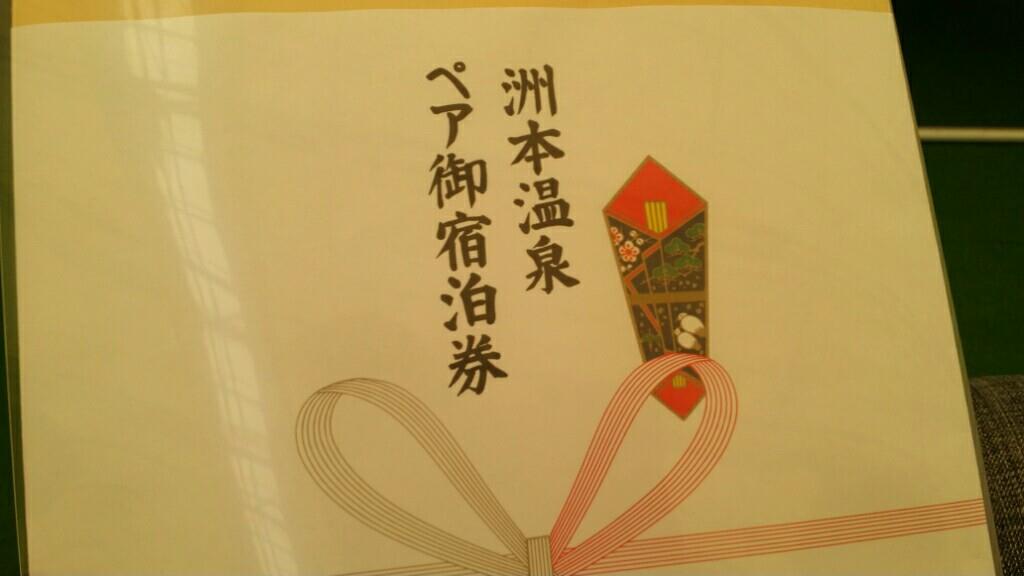 洲本温泉
ペア御宿泊券